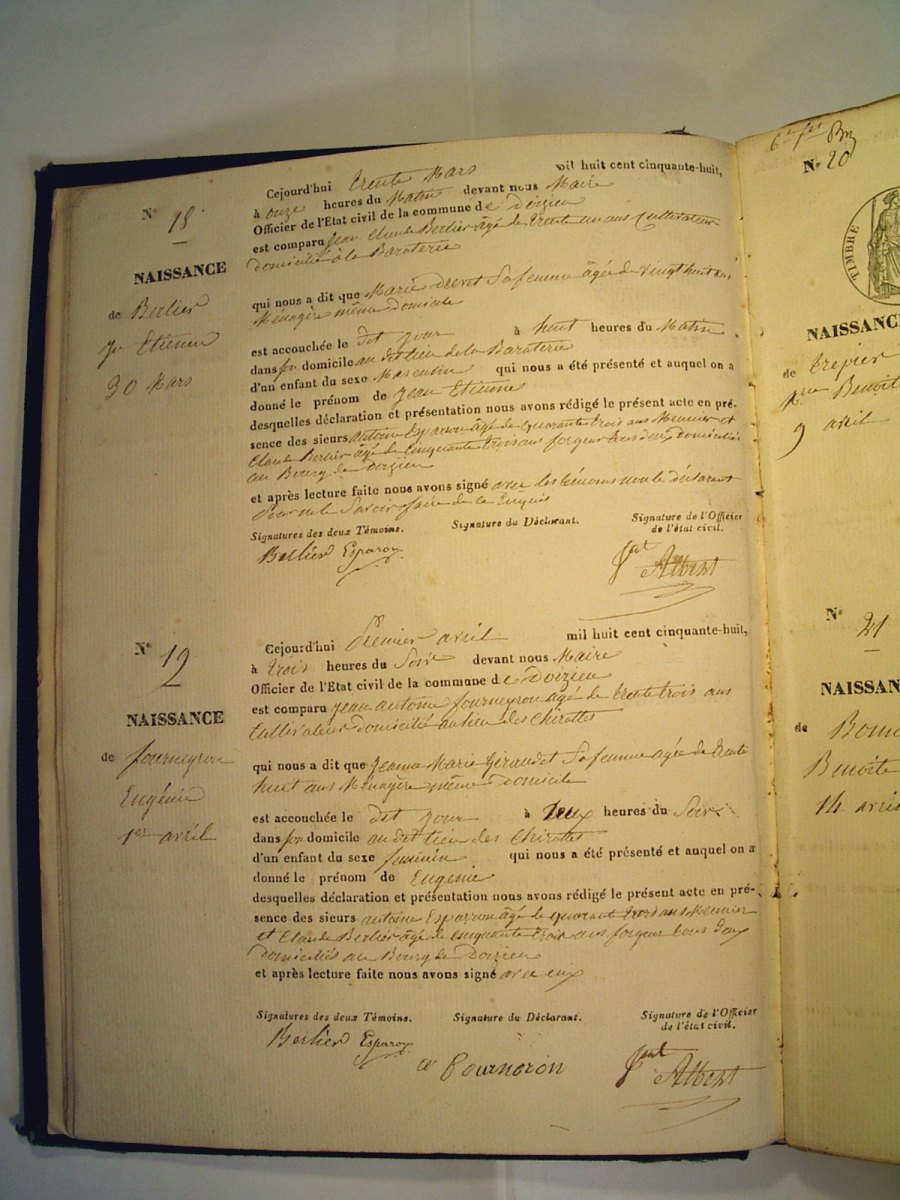 N° 18
NAISSANCE
de Berlier
Jn Etienne
30 Mars
Cejourd'hui trente Mars mil huit cent cinquante-huit,
à onze heures du Matin devant nous Maire
Officier de l'Etat civil de la commune de Doizieu
est comparu Jean Claude Berlier âgé de trente un ans Cultivateur
domicilié à la Baraterie
qui nous a dit que Marie Drevet Sa femme âgée de vingt huit ans
Ménagère même domicile
est accouchée le dit jour à huit heures du Matin
dans son domicile au dit lieu de la Baraterie
d'un enfant du sexe Masculin qui nous a été présenté et auquel on a
donné le prénom de Jean Etienne
desquelles déclaration et présentation nous avons rédigé le présent acte en pré-
sence des sieurs Antoine Esparron âgé de quarante trois ans Meunier et
Claude Berlier âgé de cinquante trois ans forgeur tous deux domiciliés
au Bourg de Doizieu
et après lecture faite nous avons signé avec les témoins non le déclarant
pour ne le Savoir faire de ce Enquis
Signatures des deux Témoins. Signature du Déclarant. Signature de l'Officier
de l'état civil.
Berlier Esparon Albert
N° 19
NAISSANCE
de fourneyron
Eugénie
1er avril
Cejourd'hui Premier avril mil huit cent cinquante-huit,
à trois heures du Soir devant nous Maire
Officier de l'Etat civil de la commune de Doizieu
est comparu Jean antoine fourneyron âgé de trente trois ans
Cultivateur domicilié au lieu des Chirottes
qui nous a dit que Jeanne Marie Giraudet Sa femme agée de trente
huit ans Ménagère même domicile
est accouchée le dit jour à deux heures du Soir
dans son domicile au dit lieu des Chirottes
d'un enfant du sexe feminin qui nous a été présenté et auquel on a
donné le prénom de Eugenie
desquelles déclaration et présentation nous avons rédigé le présent acte en pré-
sence des sieurs antoine Esparron âgé de quarant trois ans Meunier
et Claude Berlier âgé de cinquante trois ans forgeur tous deux
domiciliés au Bourg de Doizieu
et après lecture faite nous avons signé avec eux
Signatures des deux Témoins. Signature du Déclarant. Signature de l'Officier
de l'état civil.
Berlier Esparon fourneron Albert
N° 20
TIMBRE
NAISSANC
de trevier
Benoite
9 avril
N° 21
NAISSAN
de Bonn
Benoite
14 avri